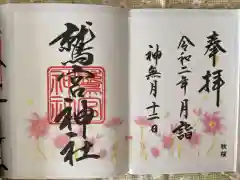 奉拝
令和二年月詣
神無月十二日
秋桜
鷲宮神社